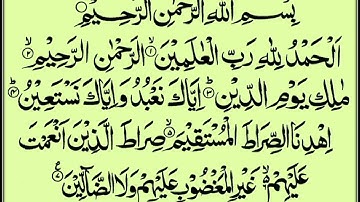 بِسْمِ اللّٰهِ الرَّحْمٰنِ الرَّحِيْمِ
اَلْحَمْدُ لِلّٰهِ رَبِّ الْعٰلَمِيْنَ ۙ‏﴿۱﴾ الرَّحْمٰنِ الرَّحِيْمِ ۙ‏﴿۲﴾
مٰلِكِ يَوْمِ الدِّيْنِ ؕ‏﴿۳﴾ اِيَّاكَ نَعْبُدُ وَ اِيَّاكَ نَسْتَعِيْنُ ؕ‏﴿۴﴾
اِهْدِنَا الصِّرَاطَ الْمُسْتَقِيْمَ ۙ‏﴿۵﴾ صِرَاطَ الَّذِيْنَ اَنْعَمْتَ
عَلَيْهِمْ ۙ۬‏﴿۶﴾ غَيْرِ الْمَغْضُوْبِ عَلَيْهِمْ وَلَا الضَّآلِّيْنَ‏﴿۷﴾